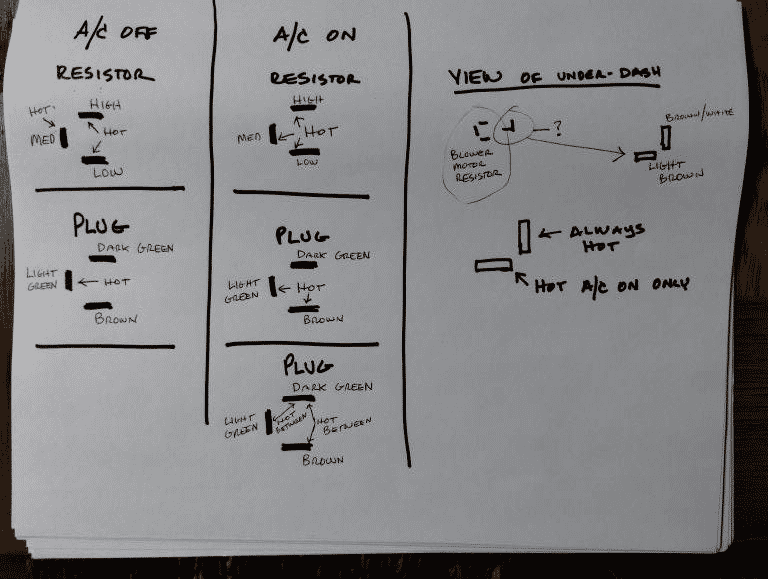 A/C OFF
RESISTOR
HOT
HIGH
MED
HOT
LOW
PLUG
DARK GREEN
LIGHT
GREEN
HOT
BROWN
A/C ON
RESISTOR
HIGH
MED
HOT
LOW
PLUG
DARK GREEN
LIGHT
GREEN
HOT
BROWN
PLUG
DARK GREEN
LIGHT
GREEN
HOT
BETWEEN
HOT
BETWEEN
BROWN
VIEW OF UNDER-DASH
?
BLOWER
MOTOR
RESISTOR
BROWN/WHITE
LIGHT
BROWN
ALWAYS
HOT
HOT A/C ON ONLY